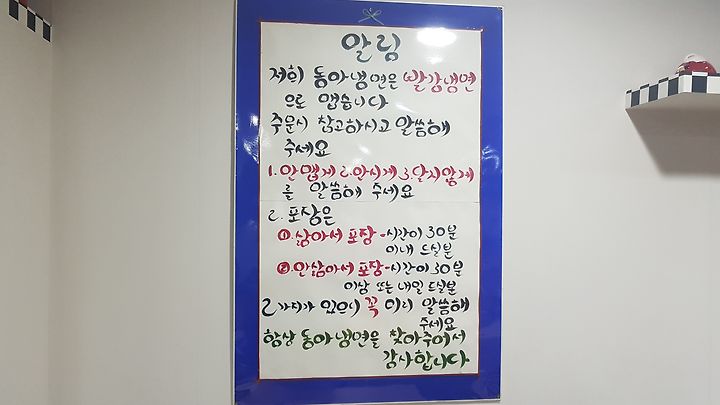 알림
저희 동아냉면은 빨강냉면
으로 맵습니다
주문시 참고하시고 말씀해
주세요
1. 안맵게 2. 안시게 3. 달지않게
를 말씀해 주세요
2. 포장은
①. 삶아서 포장 - 시간이 30분
이내 드실분
②. 안삶아서 포장 - 시간이 30분
이상 또는 내일 드실분
2가지가 있으니 꼭 미리 말씀해
주세요
항상 동아냉면을 찾아주어서
감사합니다